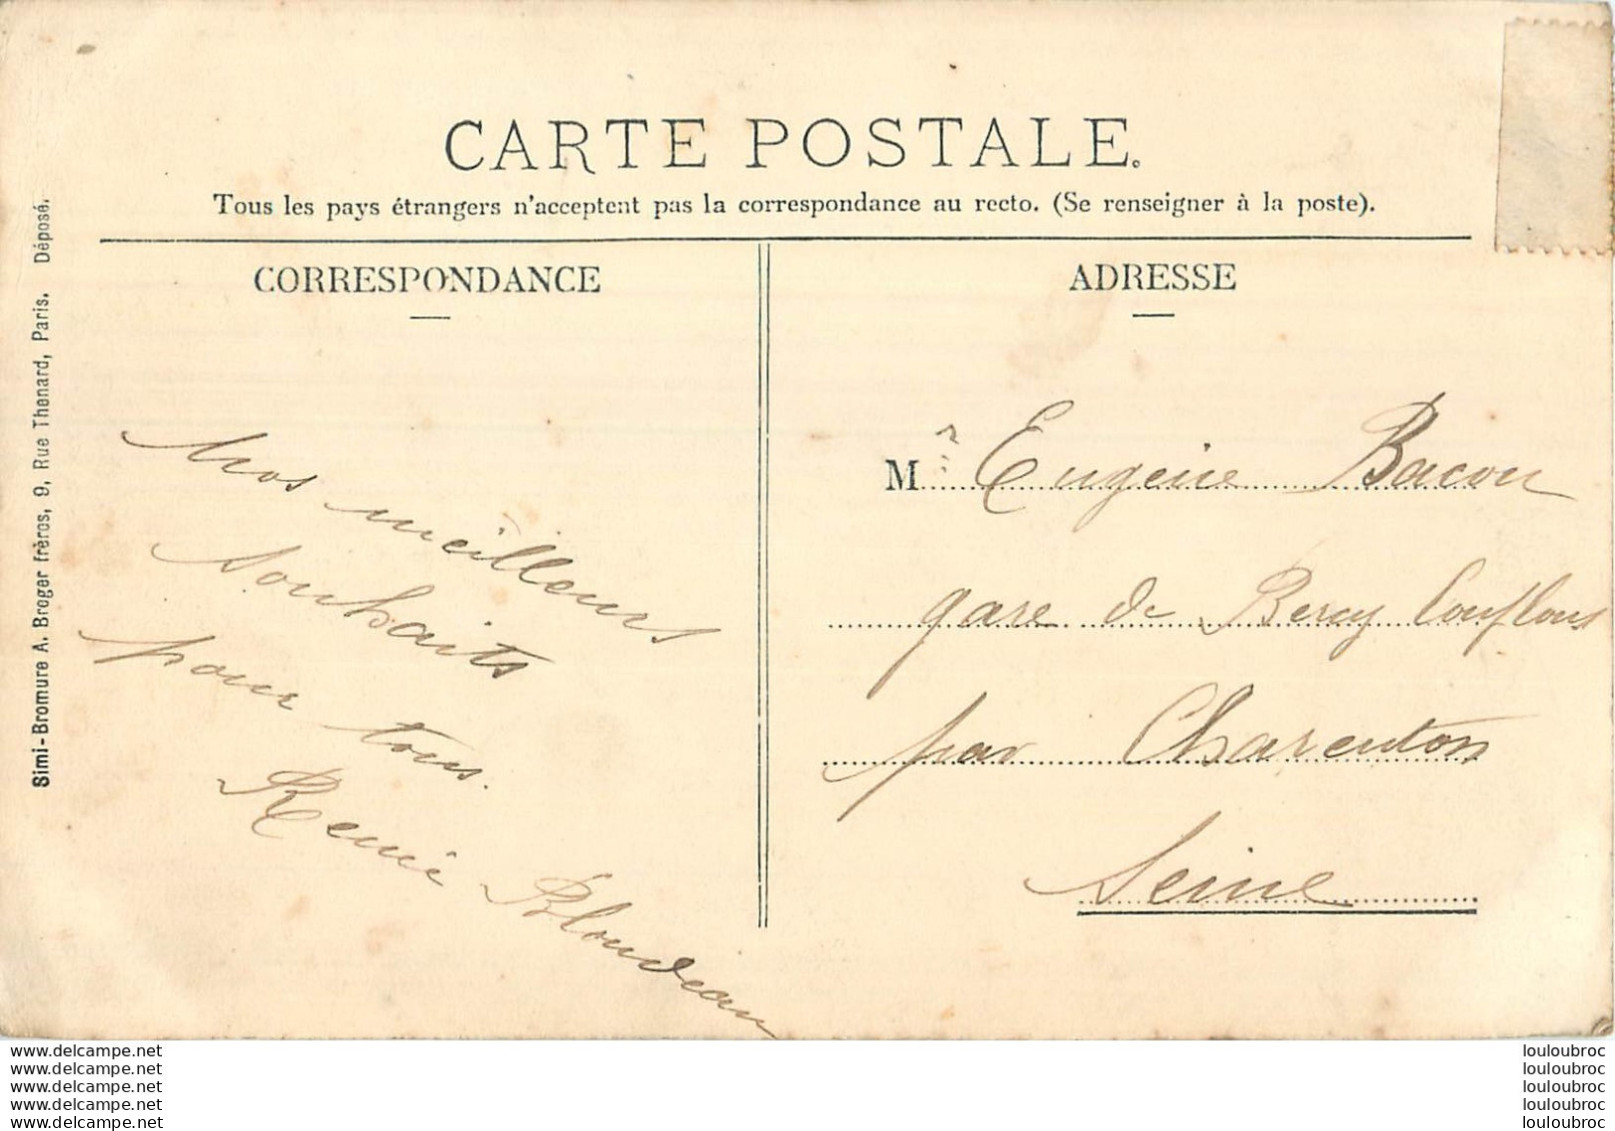 CARTE POSTALE.
Tous les pays étrangers n'acceptent pas la correspondance au recto. (Se renseigner à la poste).
CORRESPONDANCE
Nos meilleurs
souhaits
pour tous.
Remi Blondeau
ADRESSE
Mr Eugène Bacon
gare de Bercy Conflans
par Charenton
Seine
Simi-Bromure A. Broger frères, 9, Rue Thenard, Paris. Déposé.
www.delcampe.net
www.delcampe.net
www.delcampe.net
www.delcampe.net
www.delcampe.net
louloubroc
louloubroc
louloubroc
louloubroc
louloubroc